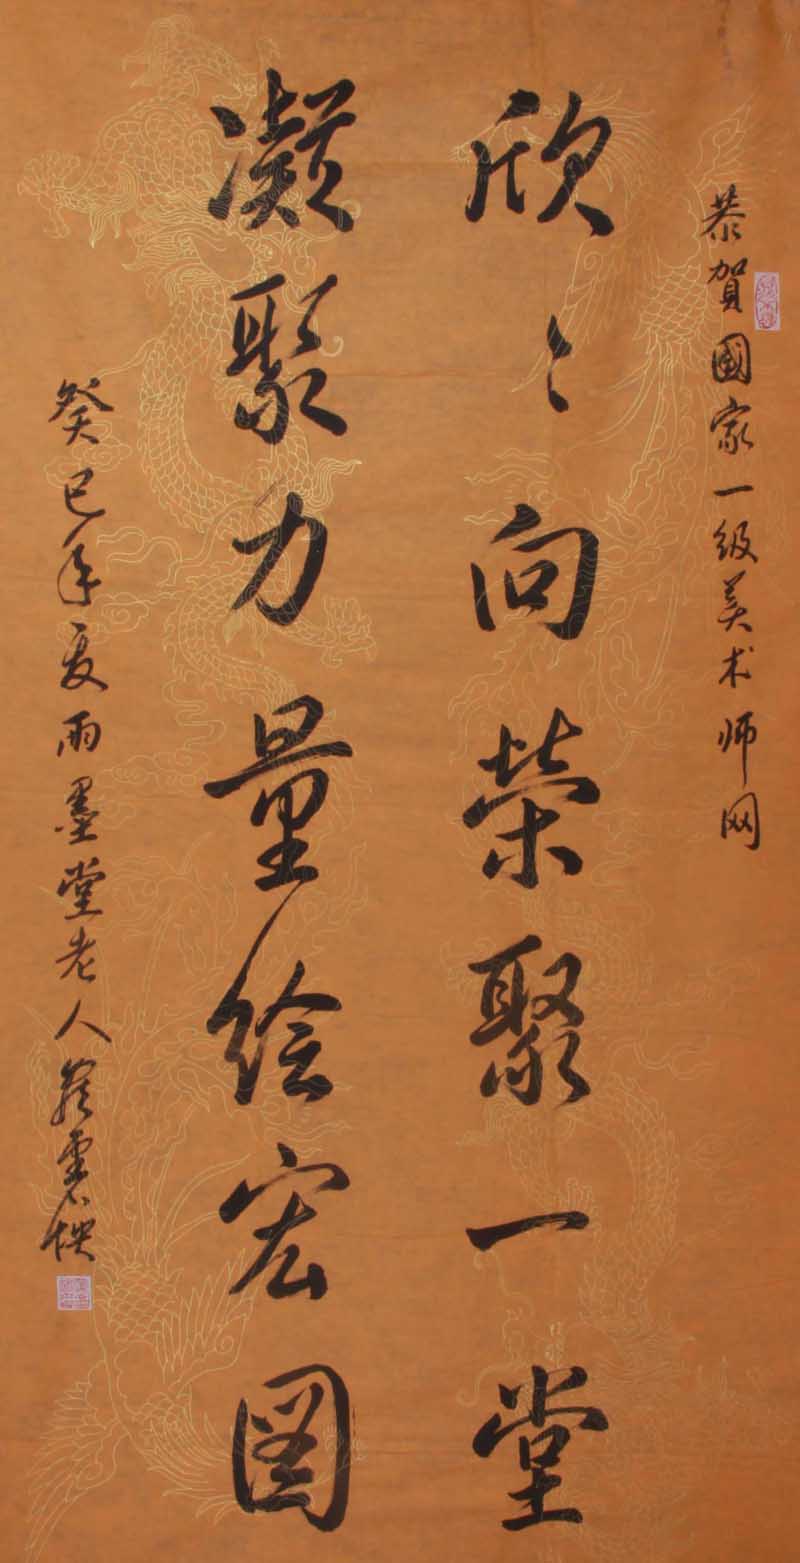 恭賀國家一级美术师网
欣〻向荣聚一堂
凝聚力量绘宏图
癸巳年夏雨墨堂老人